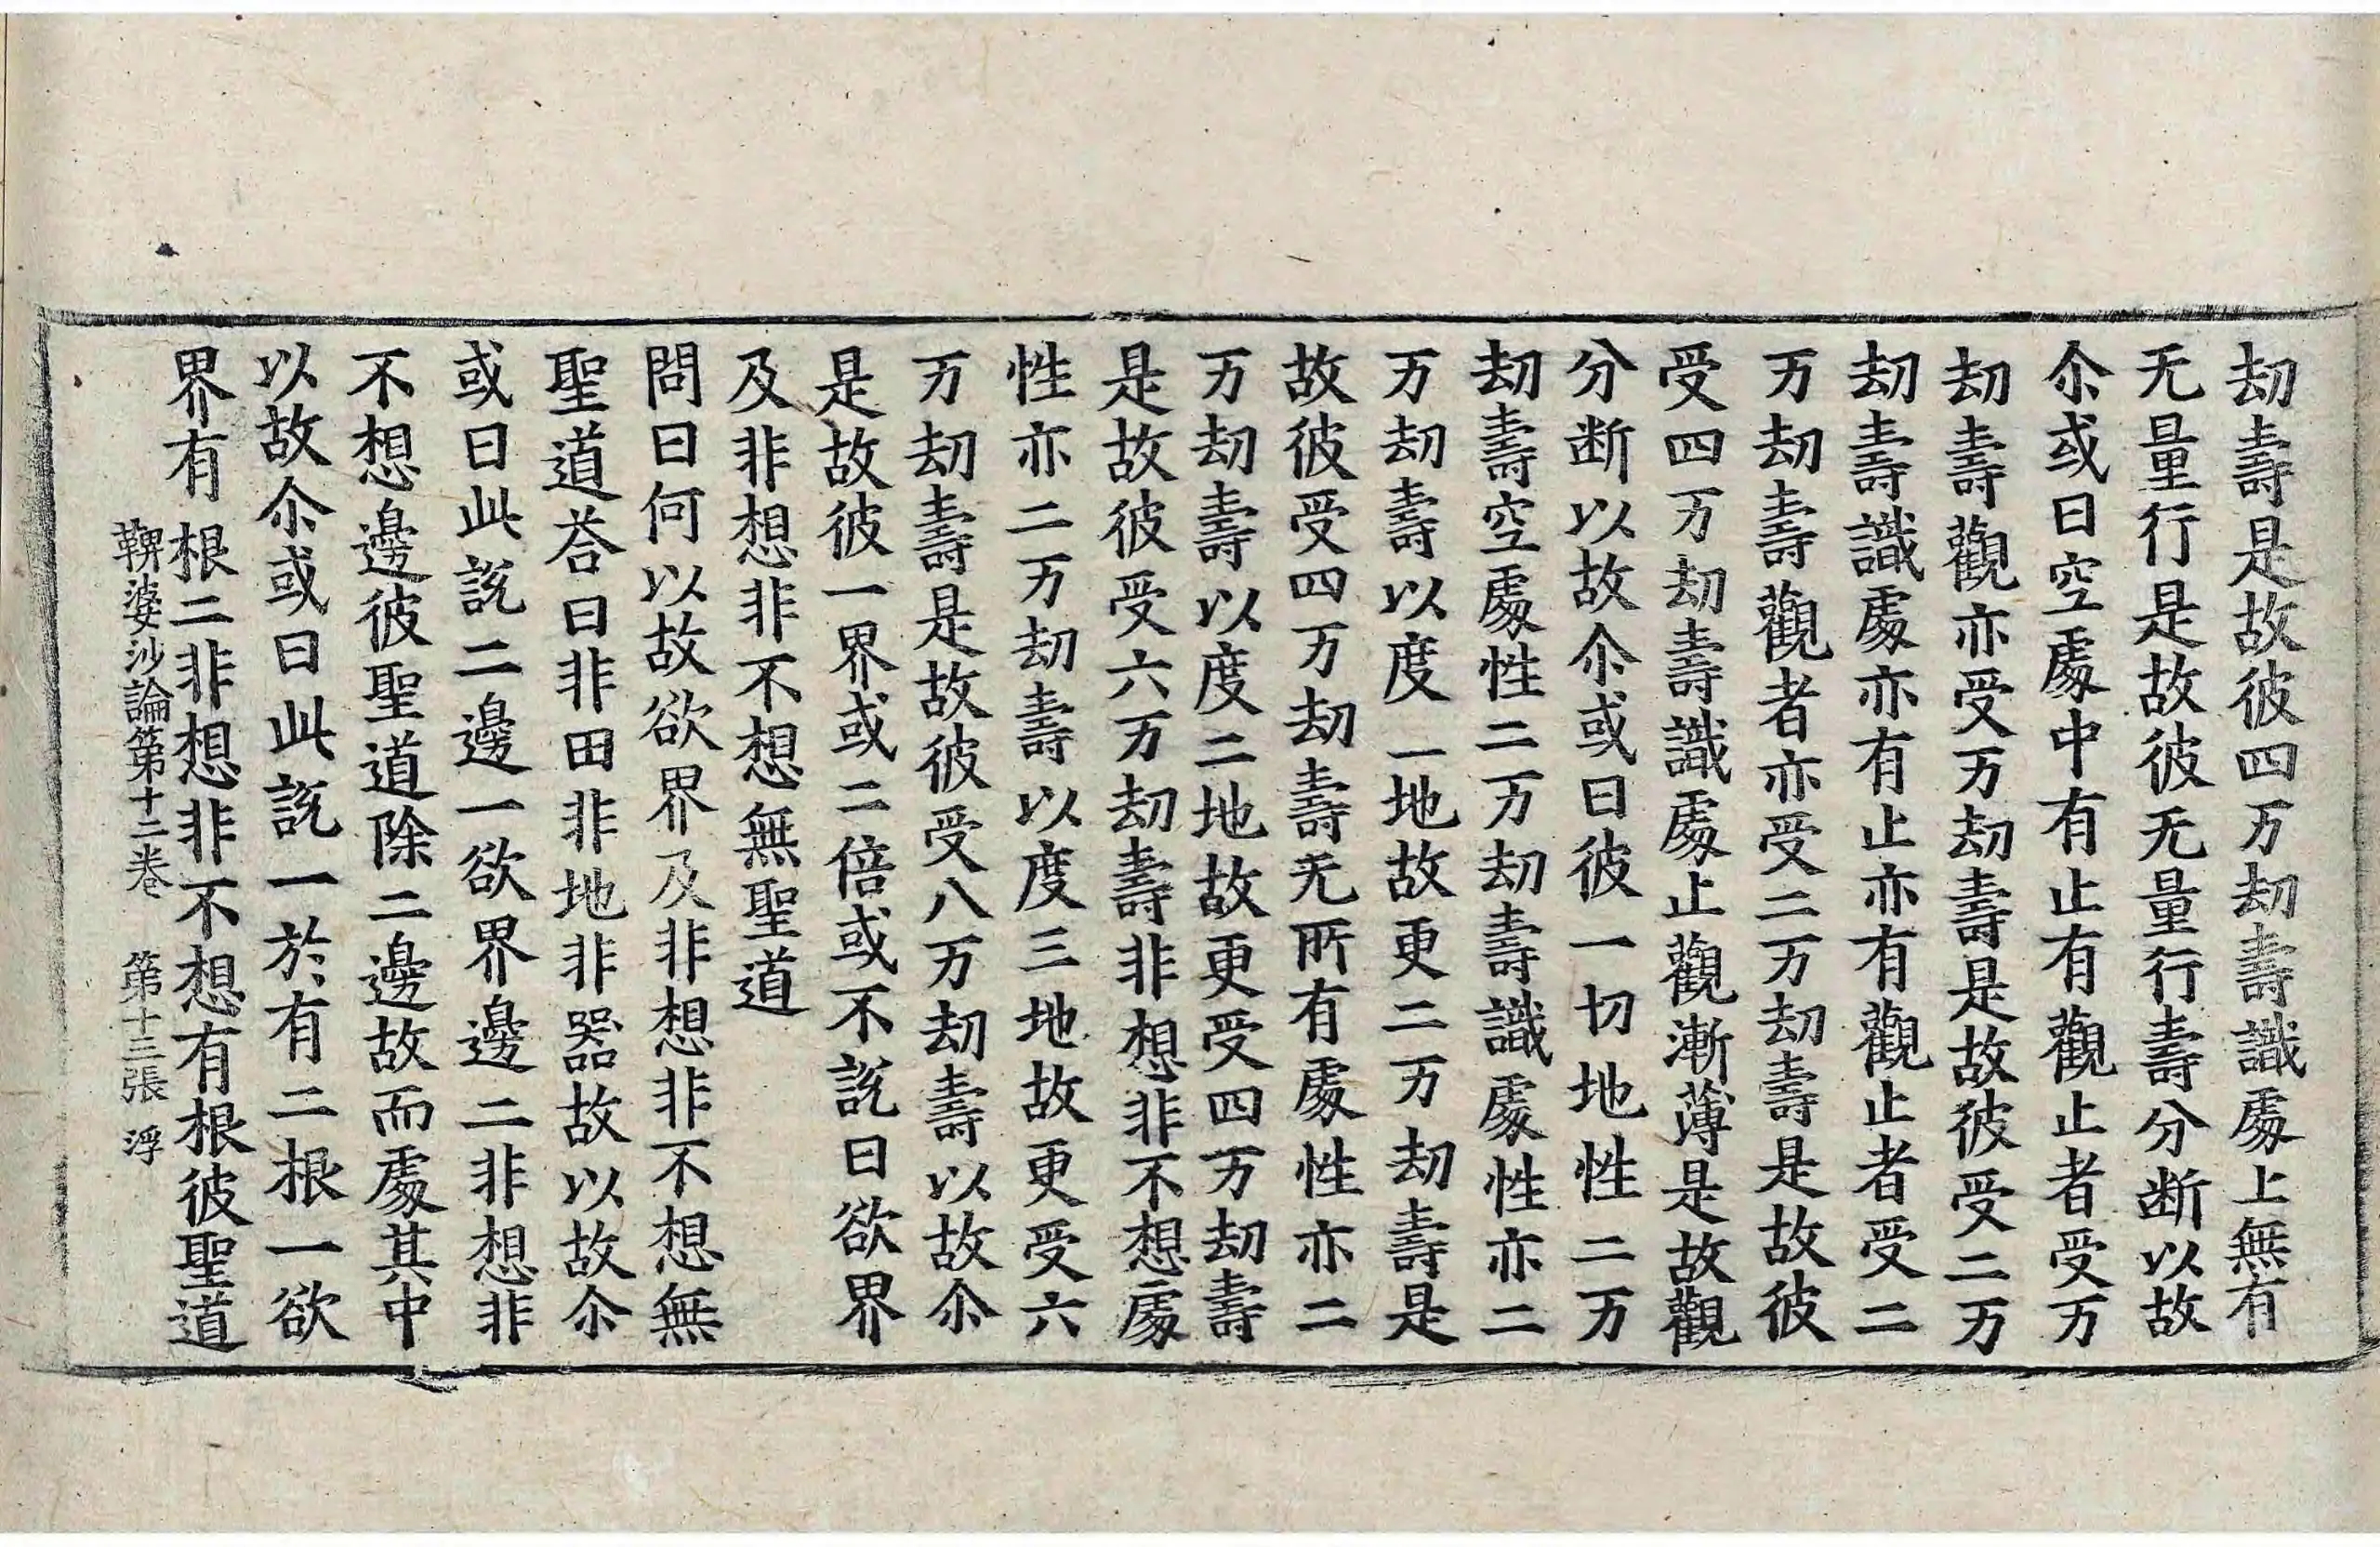 劫壽是故彼四万劫壽識處上無有
无量行是故彼无量行壽分断以故
尒或曰空處中有止有觀止者受万
劫壽觀亦受万劫壽是故彼受二万
劫壽識處亦有止亦有觀止者受二
万劫壽觀者亦受二万劫壽是故彼
受四万劫壽識處止觀漸薄是故觀
分断以故尒或曰彼一切地性二万
劫壽空處性二万劫壽識處性亦二
万劫壽以度一地故更二万劫壽是
故彼受四万劫壽无所有處性亦二
万劫壽以度二地故更受四万劫壽
是故彼受六万劫壽非想非不想處
性亦二万劫壽以度三地故更受六
万劫壽是故彼受八万劫壽以故尒
是故彼一界或二倍或不說曰欲界
及非想非不想無聖道
問曰何以故欲界及非想非不想無
聖道荅曰非田非地非器故以故尒
或曰此說二邊一欲界邊二非想非
不想邊彼聖道除二邊故而處其中
以故尒或曰此說一於有二根一欲
界有根二非想非不想有根彼聖道
鞞婆沙論第十二卷 第十三張 浮